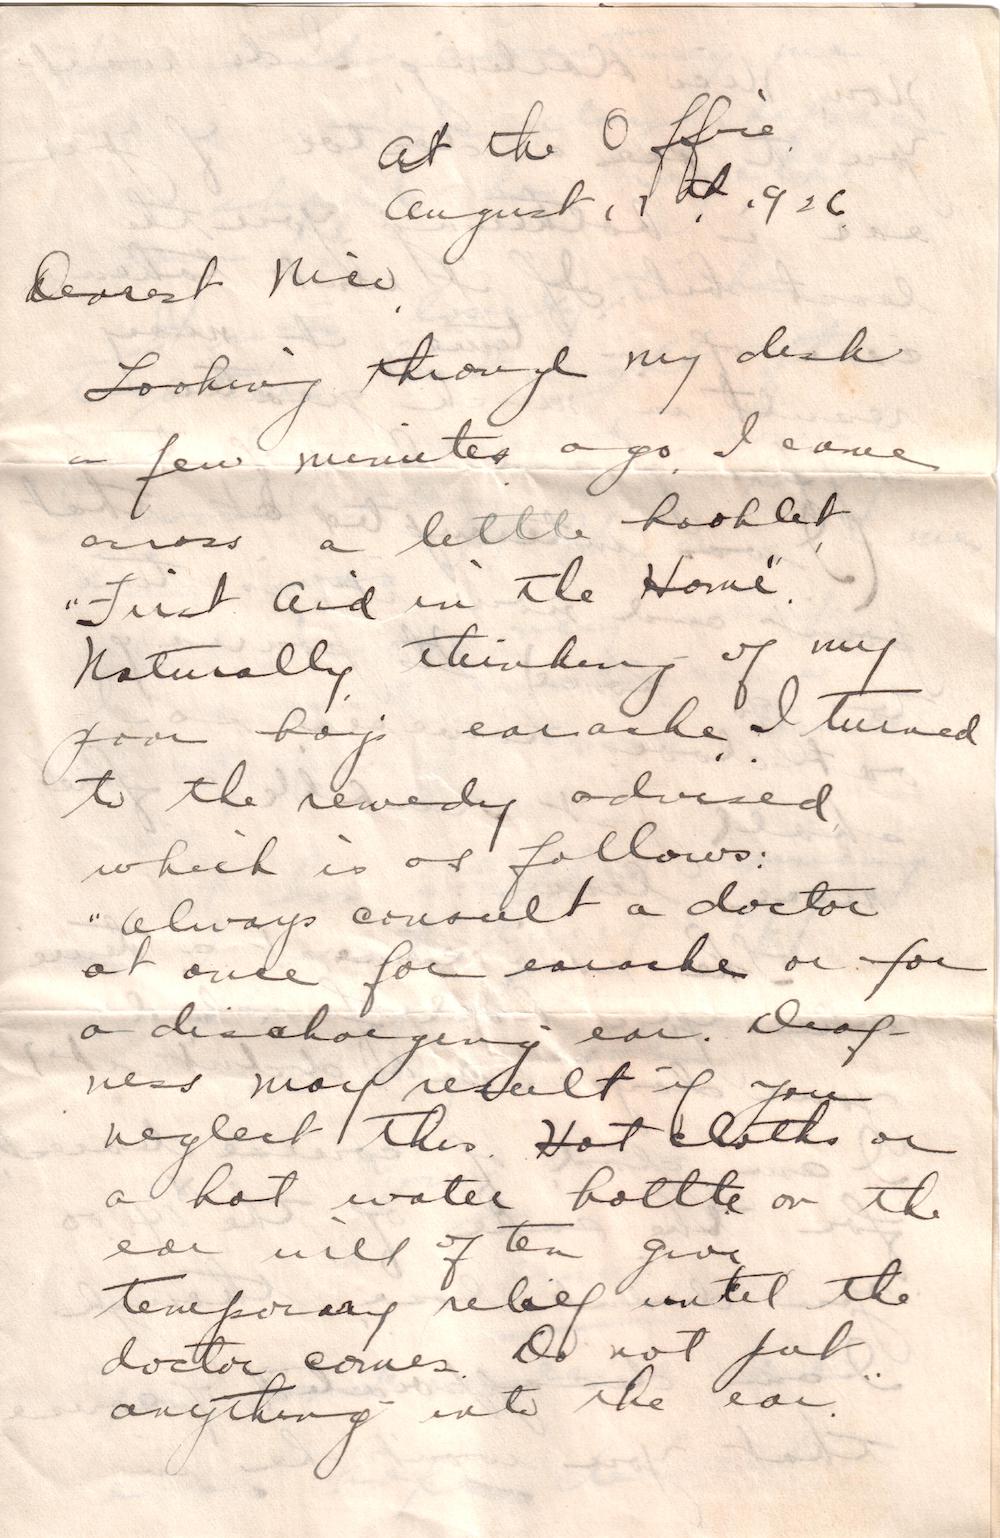 At the Office.
August, 17th, 1926.
Dearest Nico,
Looking through my desk
a few minutes ago, I came
across a little booklet,
"First Aid in the Home".
Naturally, thinking of my
poor boy's earache, I turned
to the remedy advised,
which is as follows:
"Always consult a doctor
at once for earache or for
a discharging ear. Deaf-
ness may result if you
neglect this. Hot cloths or
a hot water bottle on the
ear will often give
temporary relief until the
doctor comes. Do not put
anything into the ear."